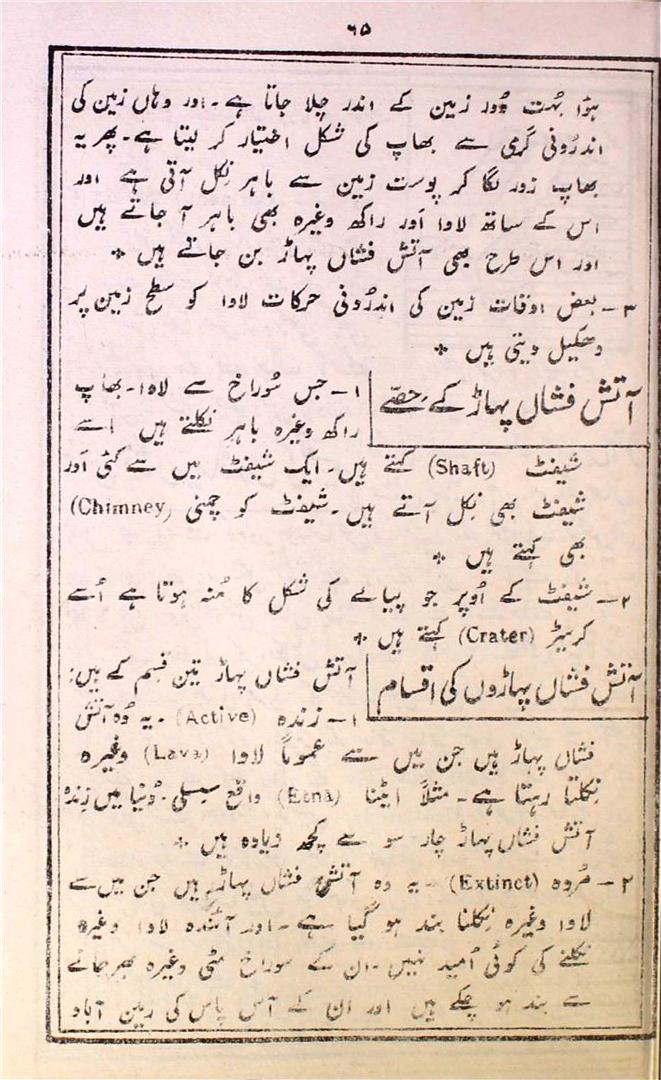 ۶۵
ہوٗا بہُت دُور زمین کے اندر چلا جاتا ہے۔ اور وہاں زمین کی
اندرُونی گرمی سے بھاپ کی شکل اختیار کر لیتا ہے۔ پھر یہ
بھاپ زور لگا کر پوست زمین سے باہر نِکل آتی ہے اور
اس کے ساتھ لاوا اَور راکھ وغیرہ بھی باہر آ جاتے ہیں
اور اس طرح بھی آتش فشاں پہاڑ بن جاتے ہیں *
۳ – بعض اوقات زمین کی اندرُونی حرکات لاوا کو سطح زمین پر
دھکیل دیتی ہیں *
آتش فشاں پہاڑ کے حِصّے
۱ – جس سُوراخ سے لاوا۔ بھاپ
راکھ وغیرہ باہر نکلتے ہیں اسے
شیفٹ (Shaft) کہتے ہیں۔ ایک شیفٹ میں سے کئی اَور
شیفٹ بھی نِکل آتے ہیں۔ شیفٹ کو چمنی (Chimney)
بھی کہتے ہیں *
۲ – شیفٹ کے اُوپر جو پیالے کی شکل کا مُنہ ہوتا ہے اُسے
کریٹر (Crater) کہتے ہیں *
آتش فشاں پہاڑوں کی اقسام
آتش فشاں پہاڑ تین قِسم کے ہیں:
۱ – زندہ (Active) ۔ یہ وُہ آتش
فشاں پہاڑ ہیں جن میں سے عموماً لاوا (Lava) وغیرہ
نِکلتا رہتا ہے۔ مثلاً ایٹنا (Etna) واقع سِسلی۔ دُنیا میں زندہ
آتش فشاں پہاڑ چار سو سے کچھ زیادہ ہیں *
۲ – مُردہ (Extinct) ۔ یہ وہ آتش فشاں پہاڑ ہیں جن میں سے
لاوا وغیرہ نِکلنا بند ہو گیا ہے۔ اور آئندہ لاوا وغیرہ
نکلنے کی کوئی اُمید نہیں۔ ان کے سوراخ مٹی وغیرہ بھر جانے
سے بند ہو چکے ہیں اور ان کے آس پاس کی زمین آباد